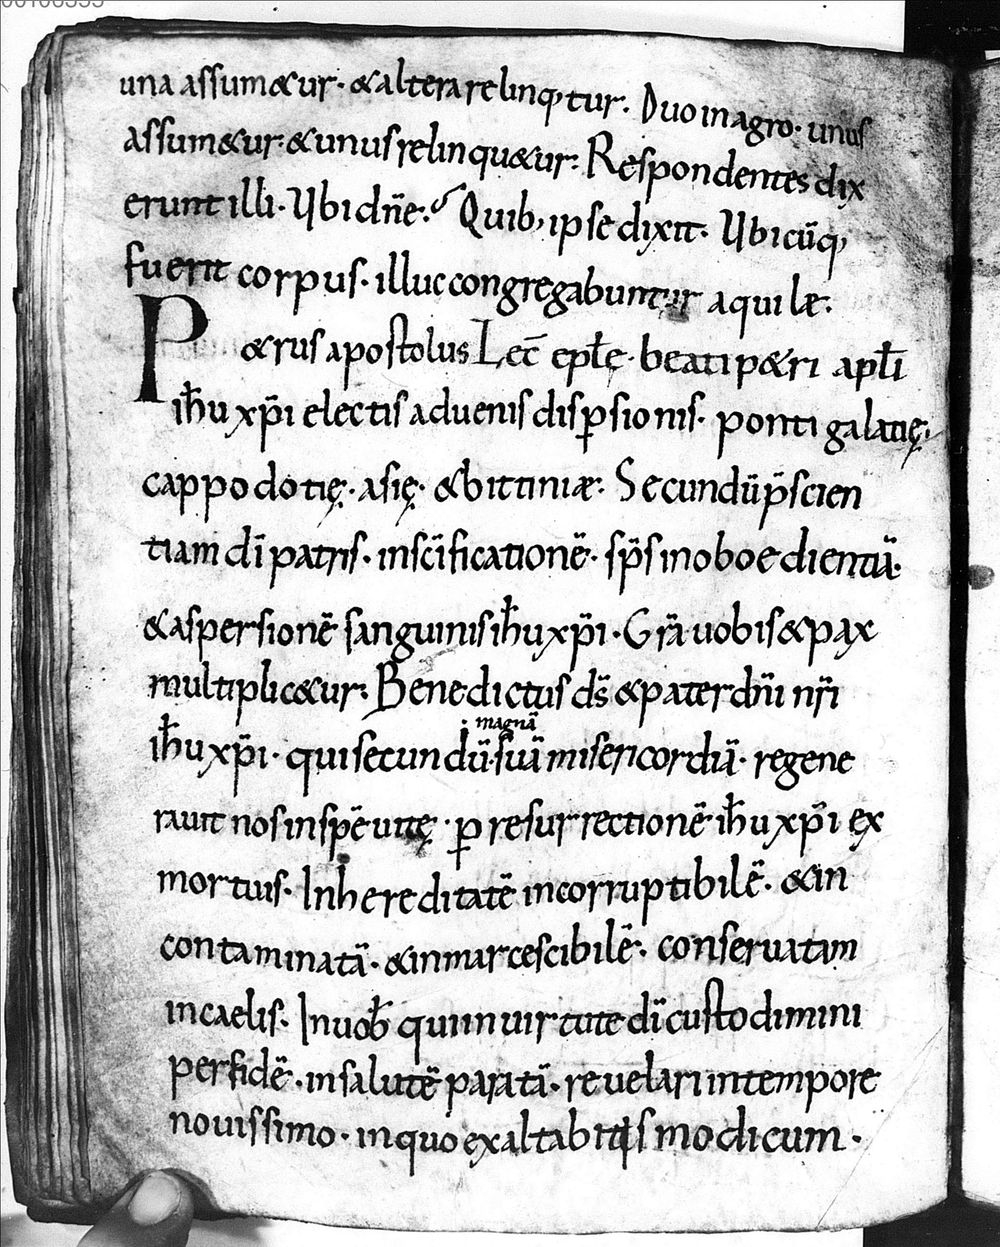 una assum&ur · & altera relinq;tur · Duo in agro · unus
assum&ur · & unus relinqu&ur · Respondentes dix
erunt illi · Ubi dn̄e · Quib; ipse dixit · Ubicūq;
fuerit corpus · illuc congregabuntur aquilæ ·
P&rus apostolus Lec̄ ep̄le · beati p&ri ap̄li
ih̄u xp̄i electis aduenis disꝑsionis · ponti galatię ·
cappodotię · asię · & bittiniæ · Secundū p̄scien
tiam dī patris · in sc̄ificationē · sp̄s in oboedientiā ·
& aspersionē sanguinis ih̄u xp̄i · Gr̄a uobis & pax
multiplic&ur · Benedictus ds̄ & pater dn̄i nr̄i
magnā
ih̄u xp̄i · qui secundū · suā misericordiā · regene
rauit nos in spē uitę · ꝑ resurrectionē ih̄u xp̄i ex
mortuis · In hereditatē incorruptibilē · & in
contaminatā · & inmarcescibilē · conseruatam
in caelis · In uob̄ qui in uirtute dī custodimini
per fidē · in salutē paratā · reuelari in tempore
nouissimo · in quo exaltabitis modicum ·